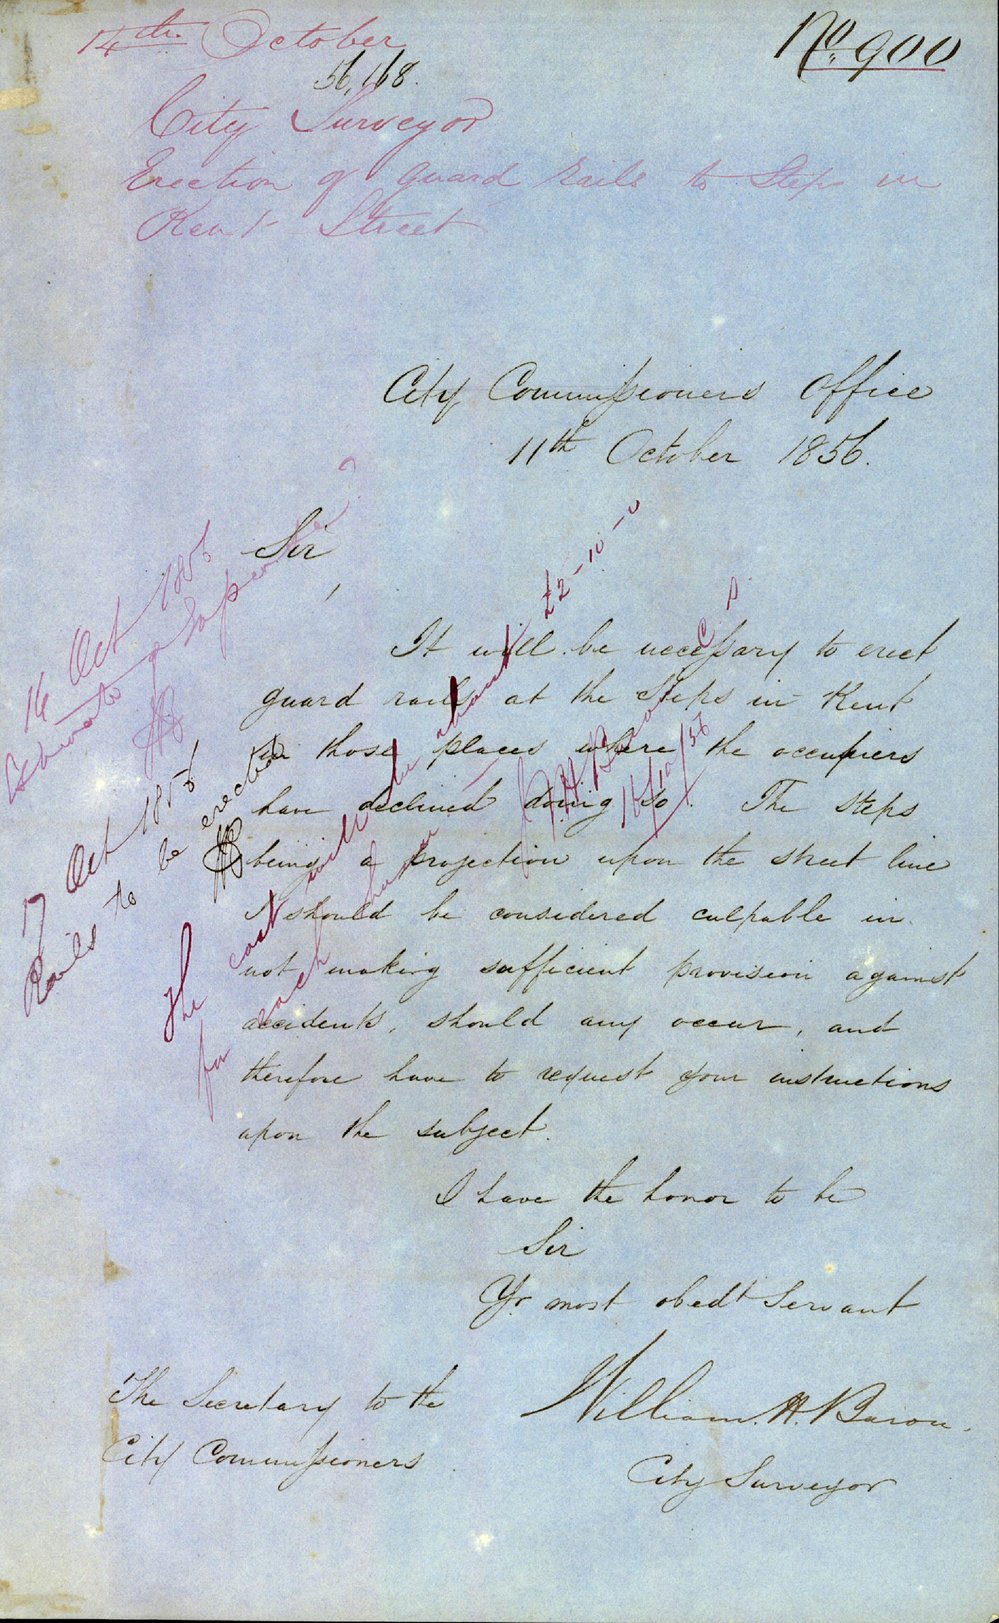 14th October
No. 900
56,168.
City Surveyor
Erection of guard rails to Steps in
Kent Street
City Commissioners Office
11th October 1856.
Sir,
It will be necessary to erect
guard rails at the steps in Kent
in those places where the occupiers
have declined doing so. The steps
being a projection upon the street line
I should be considered culpable in
not making sufficient provision against
accidents, should any occur, and
therefore have to request your instructions
upon the subject.
I have the honor to be
Sir
Yr. most obedt Servant
William. H. Baron.
City Surveyor
The Secretary to the
City Commissioners
16 Oct 1856
Estimate of expense?
The cost will be about £2-10-0
for each
W H Baron C S
16/10/56
17 Oct 1856
Rails to be erected